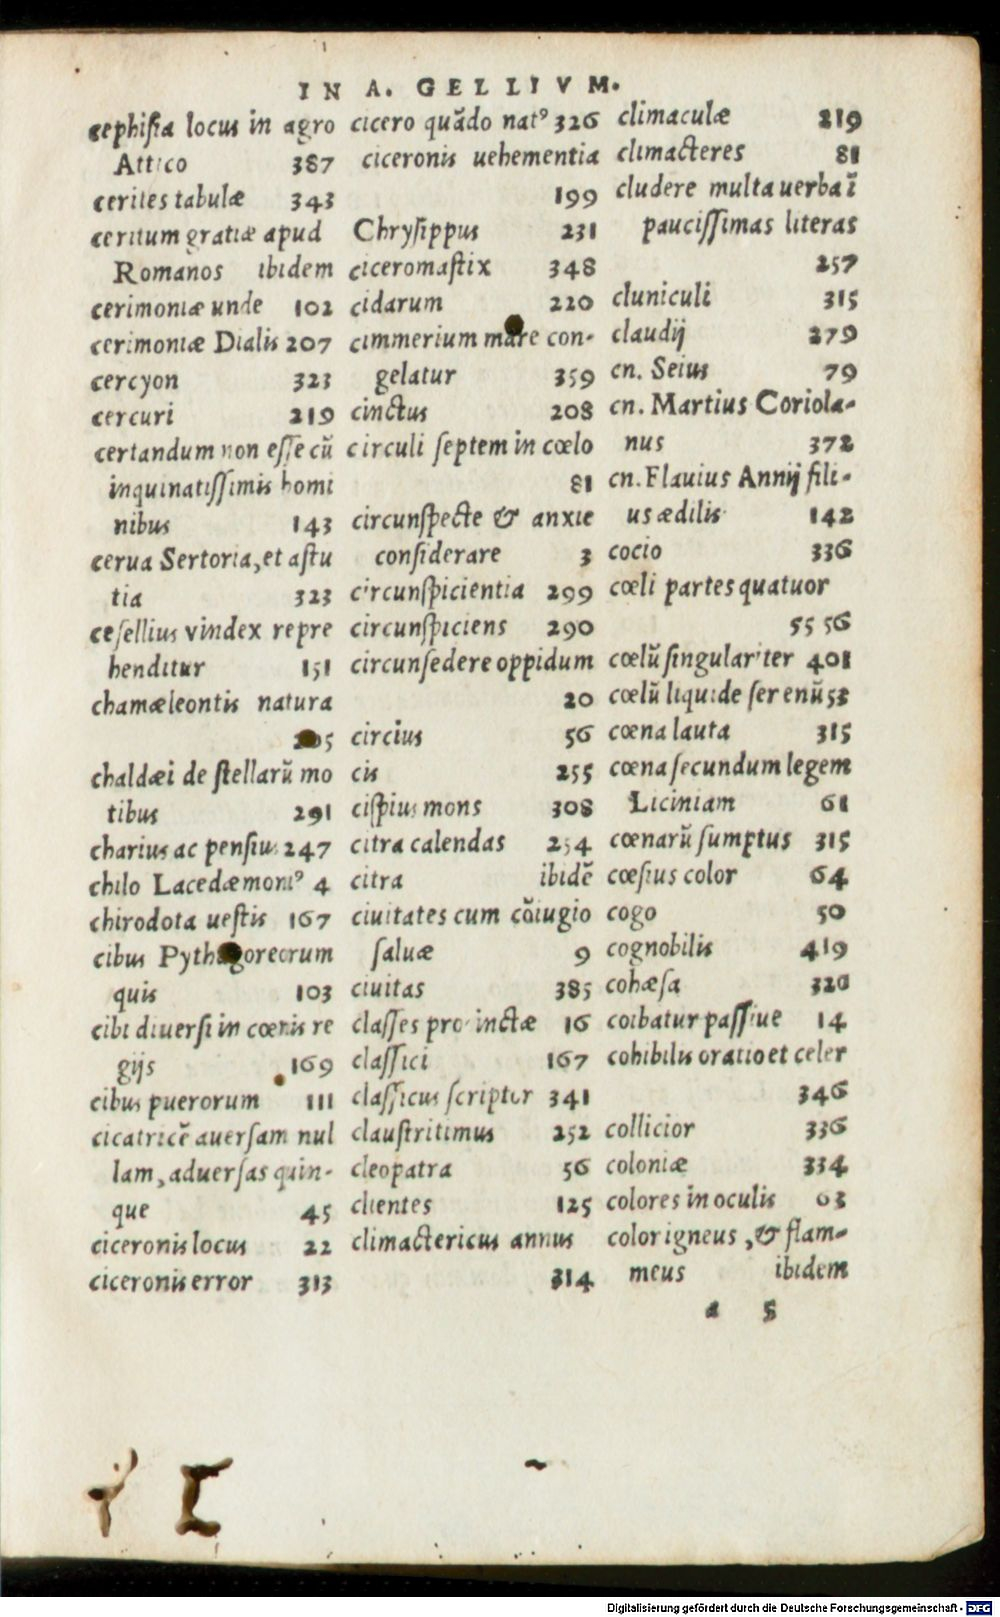 IN A. GELLIVM.
cephisia locus in agro
Attico 387
cerites tabulæ 343
ceritum gratiæ apud
Romanos ibidem
cerimoniæ unde 102
cerimoniæ Dialis 207
cercyon 323
cercuri 219
certandum non esse cū
inquinatissimis homi
nibus 143
cerua Sertoria, et astu
tia 323
cesellius vindex repre
henditur 151
chamæleontis natura
chaldæi de stellarū mo
tibus 291
charius ac pensius 247
chilo Lacedæmoni⁹ 4
chirodota uestis 167
cibus Pythagoreorum
quis 103
cibi diuersi in cœnis re
gijs 169
cibus puerorum 111
cicatricē auersam nul
lam, aduersas quin-
que 45
ciceronis locus 22
ciceronis error 313
cicero quādo nat⁹ 326
ciceronis uehementia
199
Chrysippus 231
ciceromastix 348
cidarum 220
cimmerium mare con-
gelatur 359
cinctus 208
circuli septem in cœlo
81
circunspecte & anxie
considerare 3
circunspicientia 299
circunspiciens 290
circunsedere oppidum
20
circius 56
cis 255
cispius mons 308
citra calendas 254
citra ibidē
ciuitates cum cōiugio
saluæ 9
ciuitas 385
classes prouinctæ 16
classici 167
classicus scriptor 341
claustritimus 252
cleopatra 56
clientes 125
climactericus annus
314
climaculæ 219
climacteres 81
cludere multa uerba ī
paucissimas literas
257
cluniculi 315
claudij 279
cn. Seius 79
cn. Martius Coriola-
nus 372
cn. Flauius Annij fili-
us ædilis 142
cocio 336
cœli partes quatuor
55 56
cœlū singulariter 401
cœlū liquide serenū 53
cœna lauta 315
cœna secundum legem
Liciniam 61
cœnarū sumptus 315
cœsius color 64
cogo 50
cognobilis 419
cohæsa 320
coibatur passiue 14
cohibilis oratio et celer
346
collicior 336
coloniæ 334
colores in oculis 63
color igneus, & flam-
meus ibidem
a 5
Digitalisierung gefördert durch die Deutsche Forschungsgemeinschaft - DFG